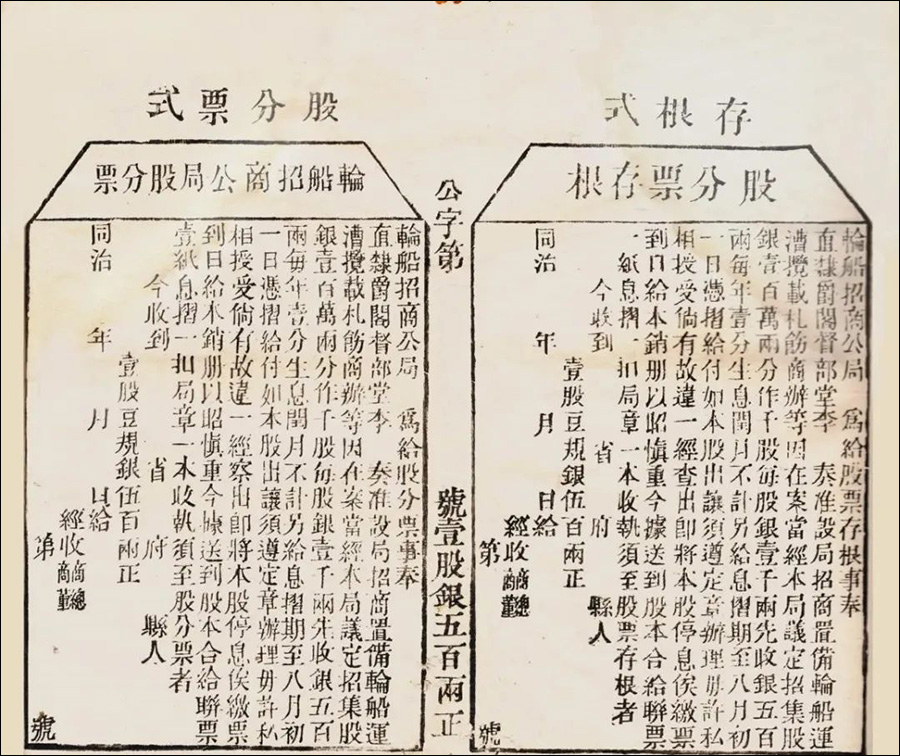 存根式
股分票存根
輪船招商公局　爲給股票存根事奉
直隸爵閣督部堂李　奏准設局招商置備輪船運
漕攬載札飭商辦等因在案當經本局議定招集股
銀壹百萬兩分作千股每股銀壹千兩先收銀五百
兩每年壹分生息閏月不計另給息摺期至八月初
一日憑摺給付如本股出讓須遵定章辦理毋許私
相授受倘有故違一經查出卽將本股停息俟繳票
到日給本銷册以昭慎重今據送到股本合給聯票
一紙息摺一扣局章一本收執須至股票存根者
今收到　省　府　縣人
壹股豆規銀伍百兩正
同治　年　月　日給
經收商總商董
第　號
公字第　號壹股銀五百兩正
股分票式
輪船招商公局股分票
輪船招商公局　爲給股分票事奉
直隸爵閣督部堂李　奏准設局招商置備輪船運
漕攬載札飭商辦等因在案當經本局議定招集股
銀壹百萬兩分作千股每股銀壹千兩先收銀五百
兩每年壹分生息閏月不計另給息摺期至八月初
一日憑摺給付如本股出讓須遵定章辦理毋許私
相授受倘有故違一經察出卽將本股停息俟繳票
到日給本銷册以昭慎重今據送到股本合給聯票
壹紙息摺一扣局章一本收執須至股分票者
今收到　省　府　縣人
壹股豆規銀伍百兩正
同治　年　月　日給
經收商總商董
第　號